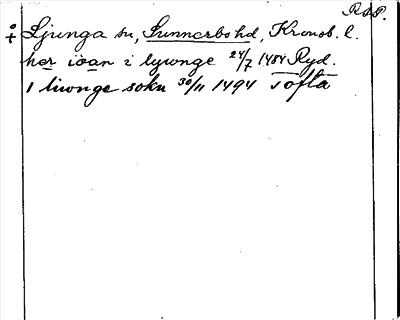 R.A.P.
Ljunga sn, Sunnerbo hd, Kronob. l.
her ioan i lywnge 24/7 1484 Ryd.
I liwonge sokn 30/11 1494 Tofta